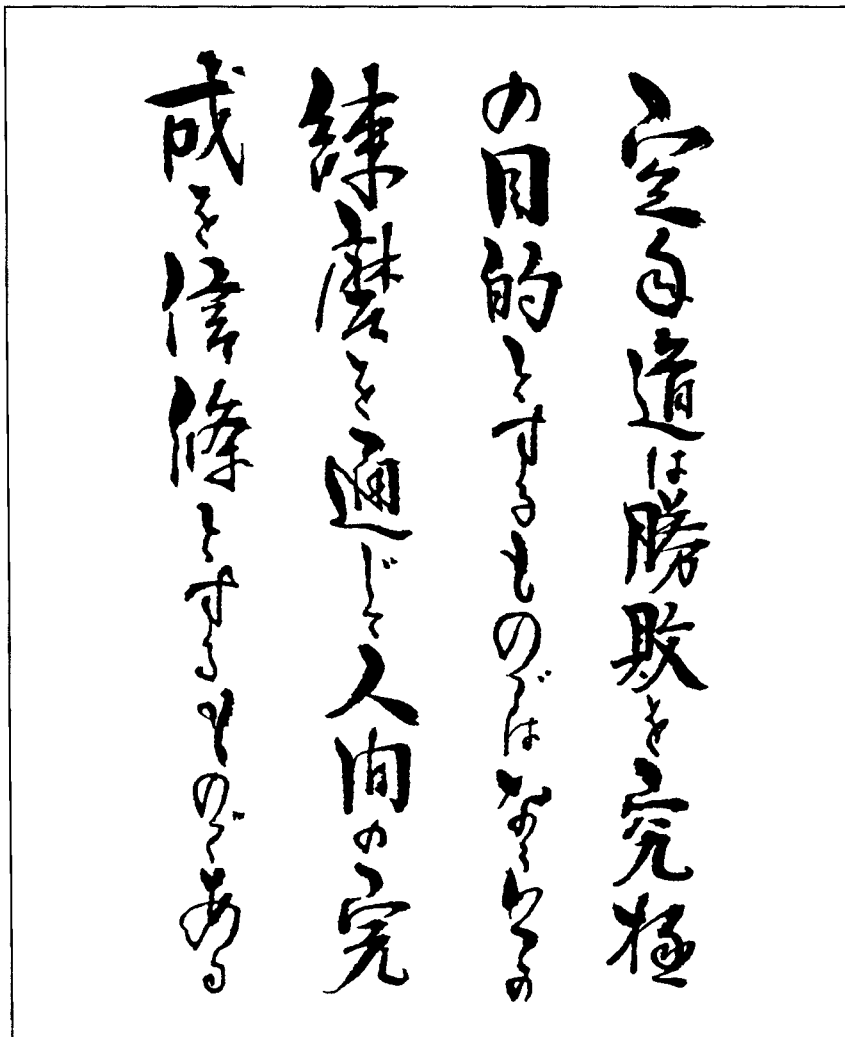 空手道は勝敗を究極
の目的とするものでは
練磨を通じて人間の完
成を信條とするものである